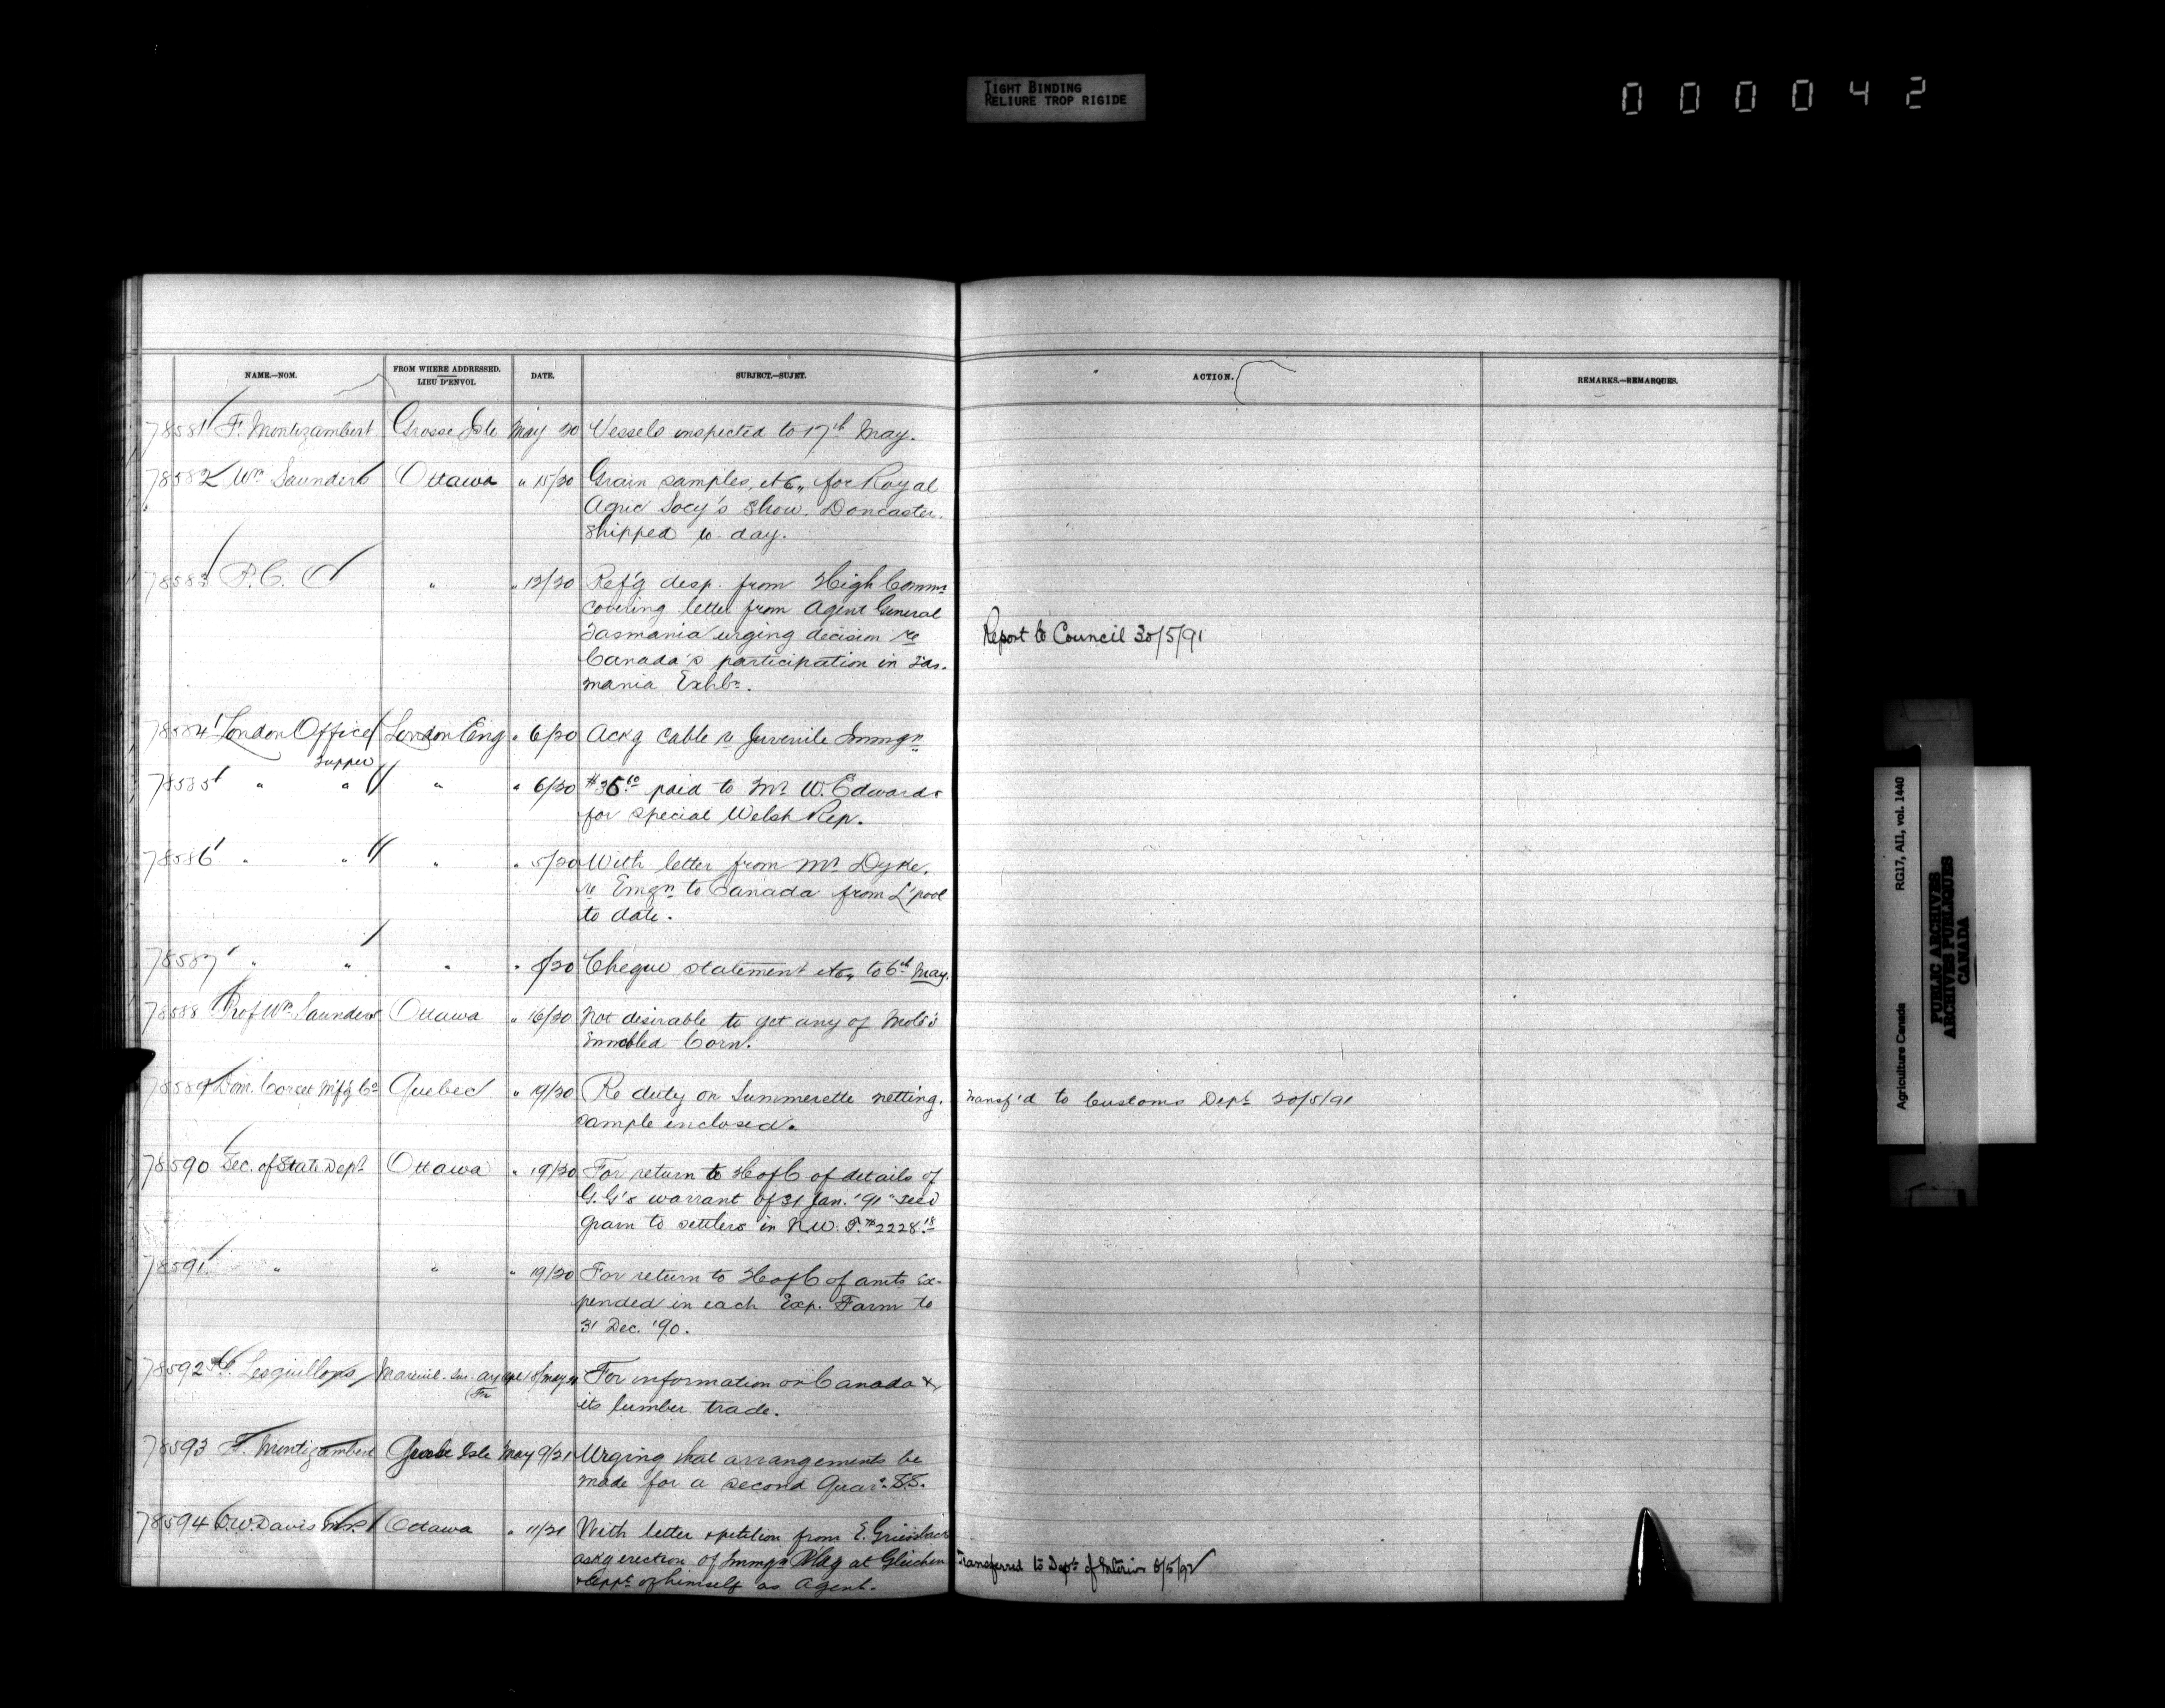 TIGHT BINDING
RELIURE TROP RIGIDE
000042
NAME.—NOM.
FROM WHERE ADDRESSED.
LIEU D'ENVOI.
DATE.
SUBJECT.—SUJET.
ACTION.
REMARKS.—REMARQUES.
78581 F. Montizambert Grosse Isle May 20 Vessels inspected to 17th May.
78582 Wm Saunders Ottawa " 15/20 Grain samples, etc,, for Royal
Agric Socy's Show. Doncaster.
shipped to-day.
78583 P.C. " " 12/20 Ref'g desp. from High Commr
covering letter from Agent General
Tasmania urging decision re
Report to Council 30/5/91
Canada's participation in Tas-
mania Exhbn.
78584 London Office London Eng " 6/20 Ackg cable re Juvenile Immgn
78585 " " " " 6/20 $36.10 paid to Mr W. Edwards
for special Welsh Rep.
78586 " " " " 5/20 With letter from Mr Dyke,
re Emgn to Canada from L'pool
to date.
78587 " " " " /20 Cheque statement etc,, to 6th May.
78588 Prof Wm Saunders Ottawa " 16/20 Not desirable to get any of
Corn.
78589 Dom. Corset M'f'g Co Quebec " 19/20 Re duty on Summerette netting. Transf'd to Customs Dept 20/5/91
sample enclosed.
78590 Sec. of State Dept Ottawa " 19/20 For return to H of C of details of
G.G's warrant of 31 Jan. '91 "seed
grain to settlers in N.W.T. $2228.18
78591 " " " 19/20 For return to H of C of amts ex-
pended in each Exp. Farm to
31 Dec. '90.
78592 Lesquillons Mareuil-sur-Ay For information on Canada &
(Fr
its lumber trade.
78593 F. Montizambert Grosse Isle May 9/21 Urging that arrangements be
made for a second Quar: S.S.
78594 D.W. Davis Ottawa " 11/21 With letter & petition from E. Griesbach
askg erection of Immgn B'l'd'g at Gleichen Transferred to Dept of Interior 6/5/92
& appt of himself as Agent.
Agriculture Canada RG17, AII, vol. 1440
PUBLIC ARCHIVES
ARCHIVES PUBLIQUES
CANADA